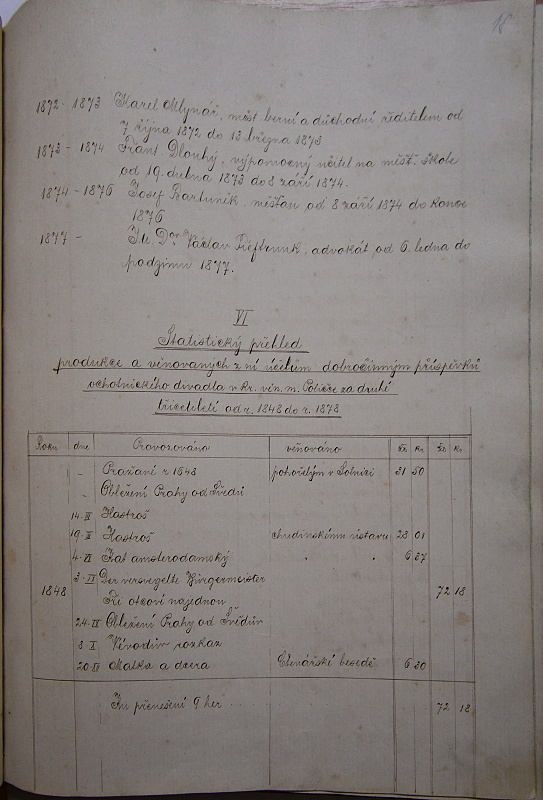 18
1872 - 1873 Karel Mlynář, měst. berní a důchodní ředitelem od
7 října 1872 do 13 března 1873
1873 - 1874 Frant Dlouhý, výpomocný učitel na měšť. škole
od 19. dubna 1873 do 8 září 1874.
1874 - 1876 Josef Bartuněk, měšťan od 8 září 1874 do konce
1876
1877 - Ju. Dor Václav Třeštrunk, advokát, od 6. ledna do
podzimu 1877.
VI
Statistický přehled
produkce a věnovaných z ní účelům dobročinným příspěvků
ochotnického divadla v kr. věn. m. Poličce za druhé
třicetiletí od r. 1848 do r. 1878
Roku dne Provozováno věnováno Zl. kr Zl. kr
- Pražané r 1648 pohořelým v Solnici 31 50
- Obležení Prahy od Švédů
14. II Hastroš
19. II Hastroš chudinskému ústavu 23 01
4. VI Kat amsterodamský " " 6 37
3. II Der versiegelte Bürgermeister
1848 Tři otcové najednou 72 18
24. II Obležení Prahy od Švédův
8. I Vévodův rozkaz
20. II Matka a dcera Čtenářské besedě 6 30
Ku přenešení 9 her ... 72 18